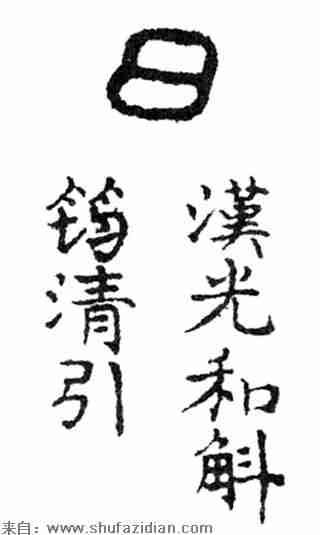 日
漢光和斛
筠清引
来自：www.shufazidian.com